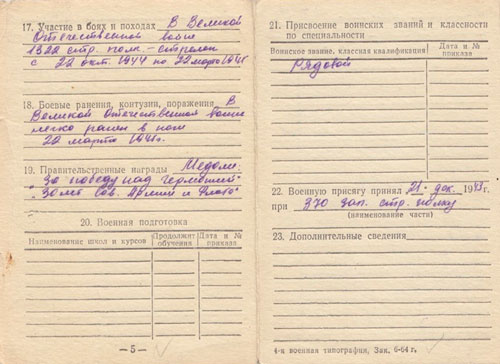 17. Участие в боях и походах В Великой
Отечественной войне
1322 стр. полк. – стрелок
с 22 окт. 1944 по 22 марта 194
18. Боевые ранения, контузии, поражения В
Великой Отечественной войне
легко ранен в
22 марта 194
19. Правительственные награды Медали:
"За победу над Германией"
"30 лет Сов. Армии и Флота"
20. Военная подготовка
Наименование школ и курсов
Продолжит. обучения
Дата и № приказа
— 5 —
21. Присвоение воинских званий и классности
по специальности
Воинское звание, классная квалификация
Дата и № приказа
Рядовой
22. Военную присягу принял 21 дек. 19 г.
при 370 зап. стр. полку
(наименование части)
23. Дополнительные сведения
4-я военная типография, Зак. 6-64 г.